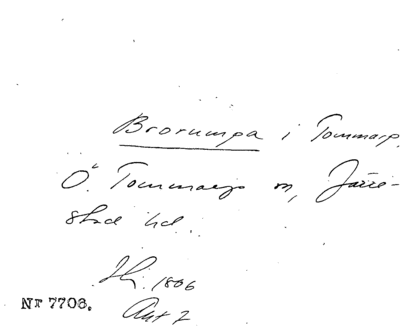 Brorumpa i Tommarp,
Ö. Tommarp sn, Järre-
stad hd.
1806
Akt 7
Nr 7706.